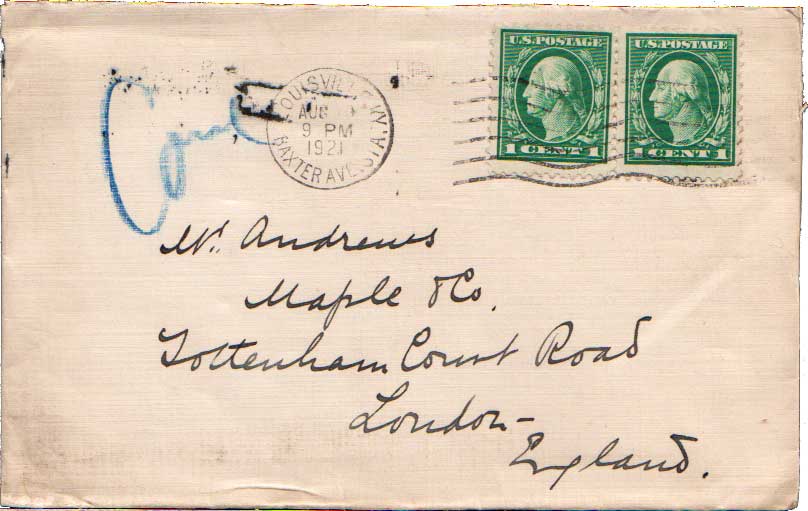 U.S. POSTAGE
1 CENT 1
U.S. POSTAGE
1 CENT 1
LOUISVILLE, KY.
AUG
9 PM
1921
BAXTER AVE. STA.
Mr. Andrews
Maple & Co.
Tottenham Court Road
London
England.